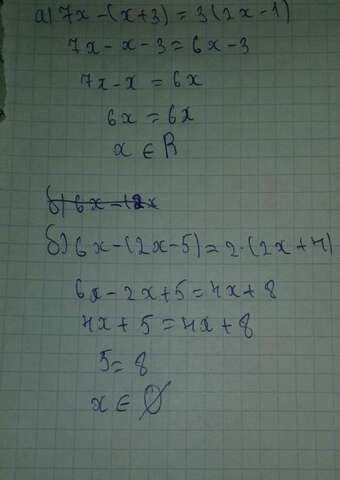 а) 7x-(x+3)=3(2x-1)
7x-x-3=6x-3
7x-x=6x
6x=6x
x∈R
б) 6x-(2x-5)=2·(2x+4)
6x-2x+5=4x+8
4x+5=4x+8
5=8
x∈∅